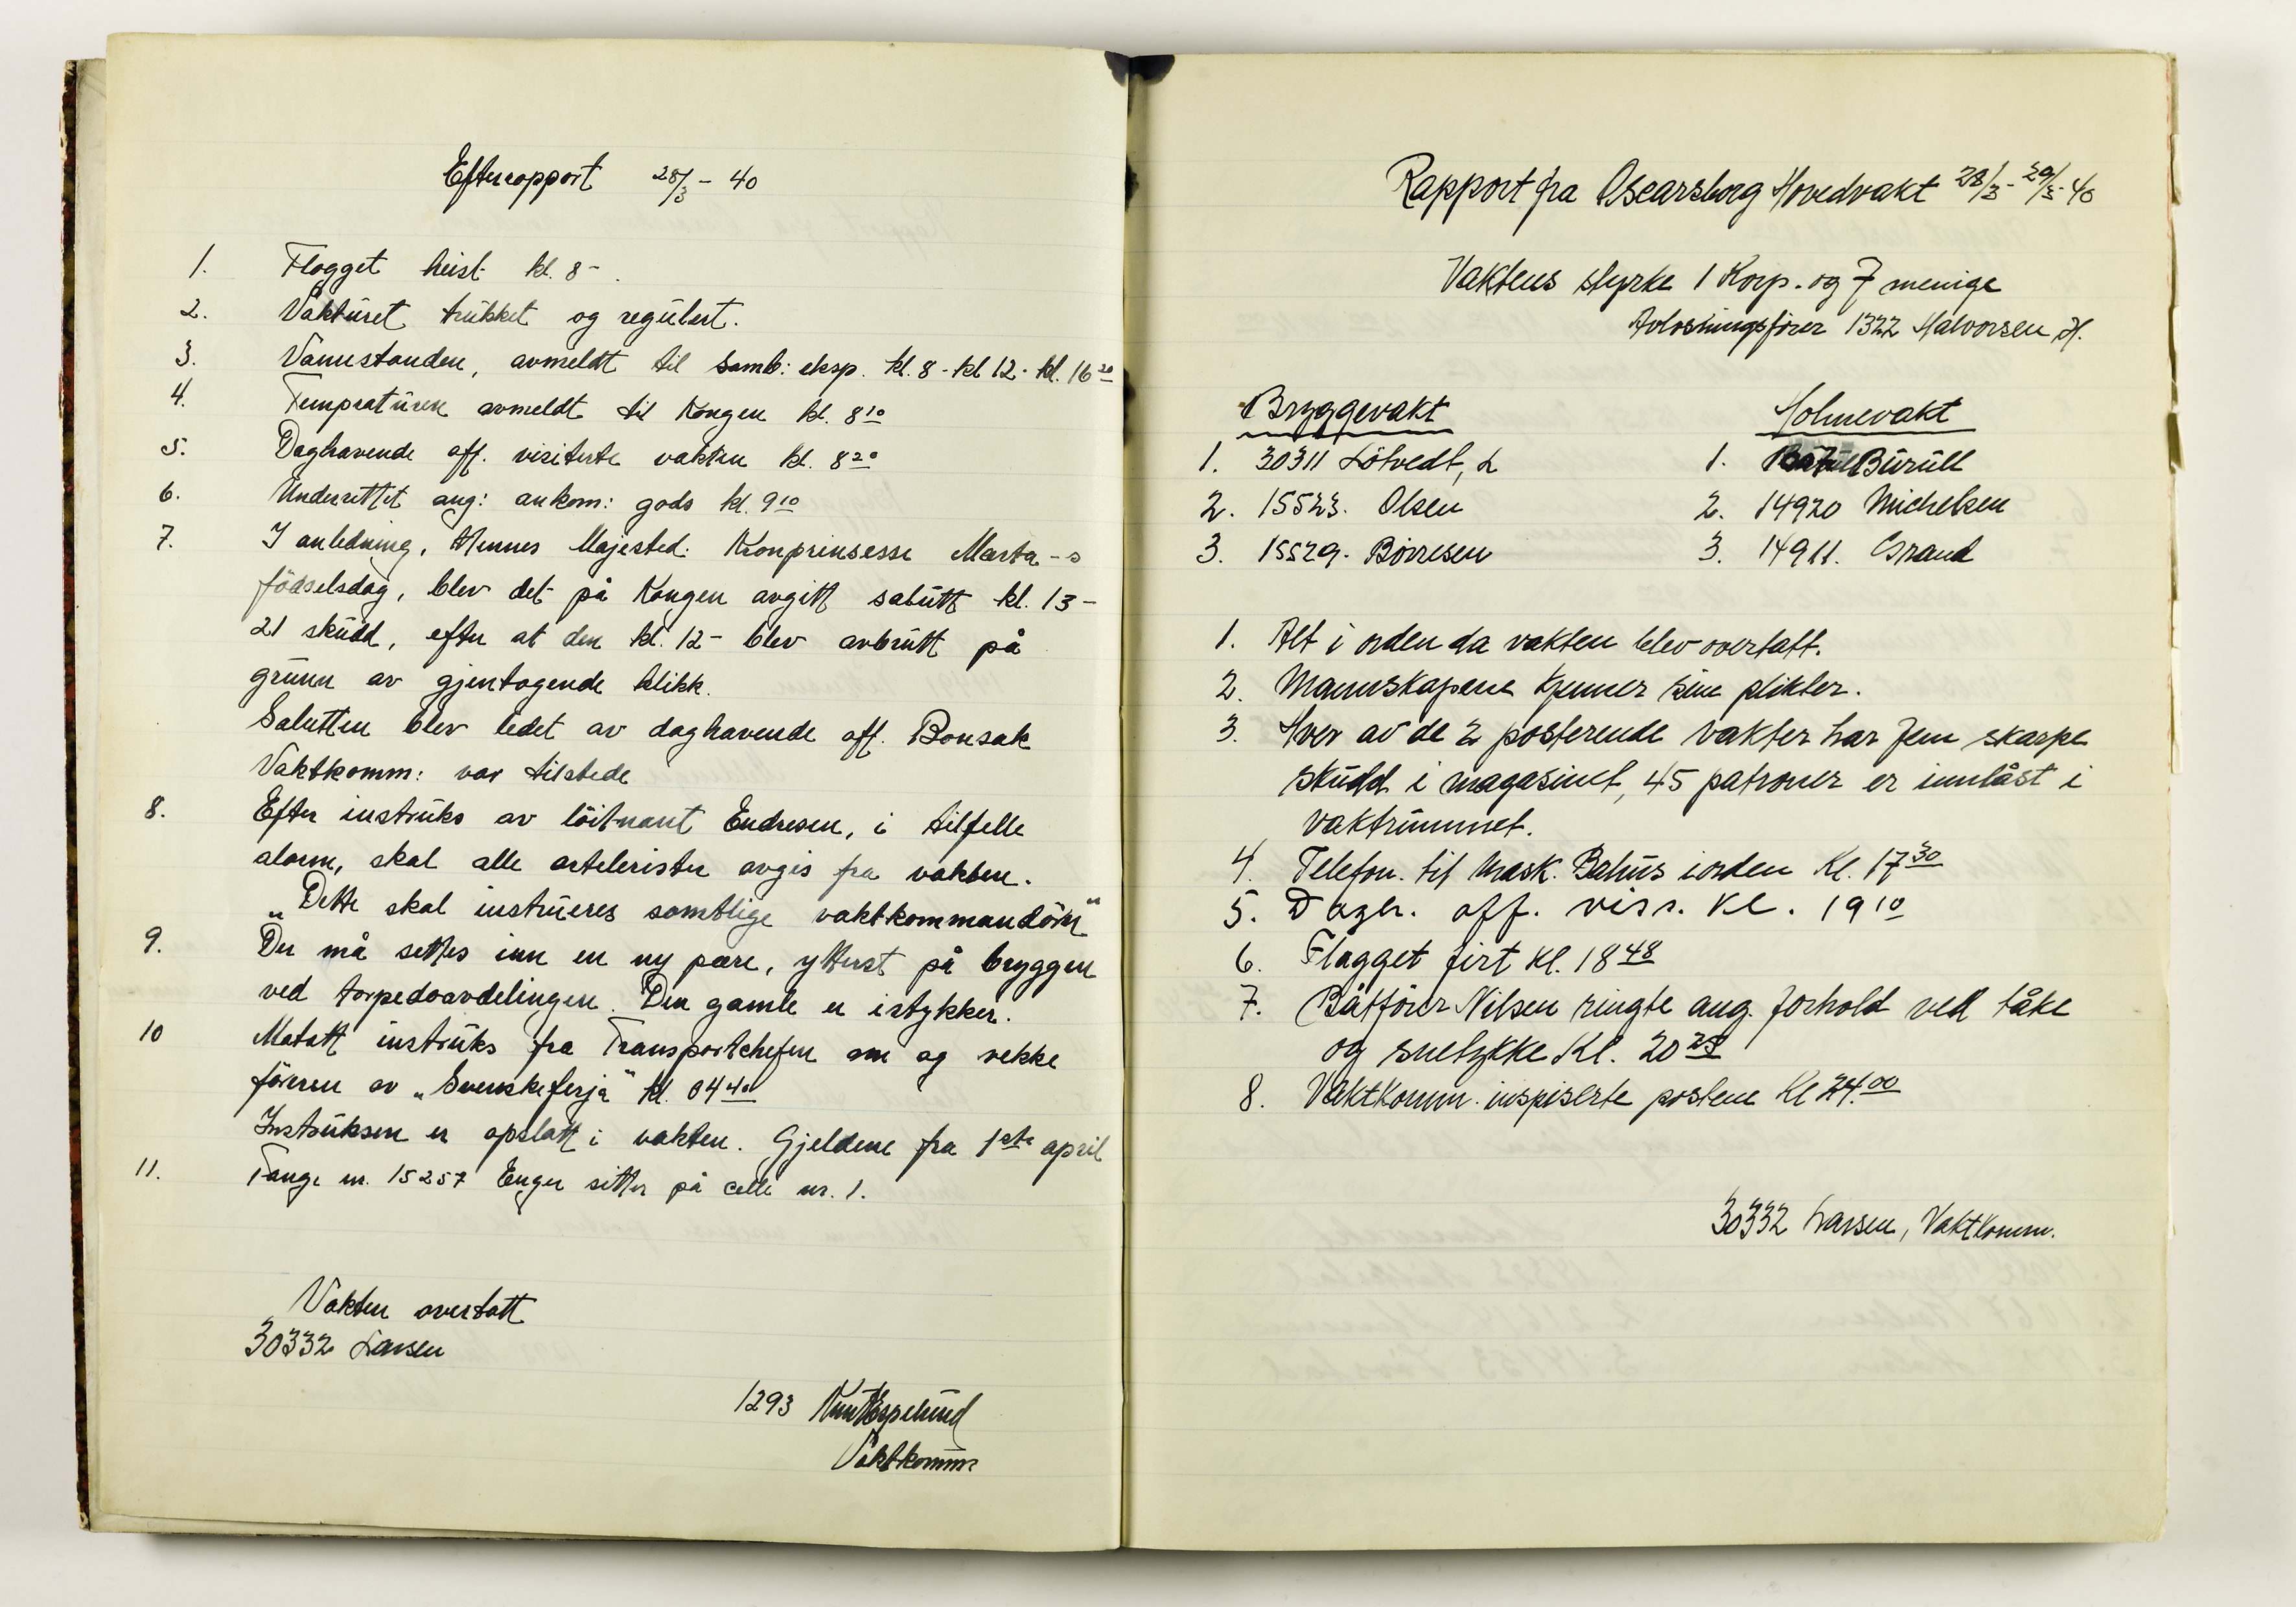 Efterrapport 28/3 - 40
1. Flagget heist kl. 8 -
2. Vakturet trukket og regulert.
3. Vannstanden, avmeldt til Samb: eksp. kl. 8 - kl 12 - kl. 16 20
4. Tempraturen avmeldt til Kongen kl. 8 10
5. Daghavende off. visiterte vakten kl. 8 20
6. Underrettet ang: ankom: gods kl. 9 10
7. I anledning, Hennes Majested: Kronprinsesse Marta -s
födselsdag, blev det på Kongen avgitt salutt kl. 13 -
21 skudd, efter at den kl. 12 - blev avbrutt på
grunn av gjentagende klikk.
Salutten blev ledet av daghavende off. Bonsak
Vaktkomm: var tilstede
8. Efter instruks av löitnant Endresen, i tilfelle
alarm, skal alle artelerister avgis fra vakten.
„Dette skal instrueres samtlige vaktkommandörer"
9. Der må settes inn en ny pære, ytterst på bryggen
ved torpedoavdelingen. Den gamle er istykker.
10 Motatt instruks fra Transportchefen om og vekke
föreren av „Svenskeferja" kl. 04 40
Instruksen er opslått i vakten. Gjeldene fra 1ste april
11. Fange nr. 15257 Enger sitter på celle nr. 1.
Vakten overtatt
30332 Larsen
1293 Knut Espelund
Vaktkomm
Rapport fra Oscarsborg Hovedvakt 28/3 - 29/3 - 40
Vaktens styrke 1 Korp. og 7 menige
Avlosningsförer 1322 Halvorsen H.
Bryggevakt
1. 30311 Lötvedt, L
2. 15523. Olsen
3. 15529. Börresen
Holmevakt
1. Burull
2. 14920 Michelsen
3. 14911. Grand
1. Alt i orden da vakten blev overtatt.
2. Mannskapene kjenner sine plikter.
3. Hver av de 2 posterende vakter har fem skarpe
skudd i magasinet, 45 patroner er innlåst i
vaktrummet.
4. Telefon. til Mask. Bahus iorden Kl. 17 30
5. Dagh. off. viss. Kl. 19 10
6. Flagget firt Kl. 18 48
7. Båtförer Nilsen ringte ang. forhold ved tåke
og snetykke Kl. 20 25
8. Vaktkomm. inspiserte postene Kl 24.00
30332 Larsen, Vaktkomm.